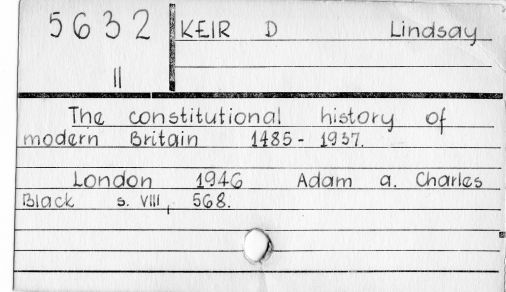 5632 KEIR D Lindsay
II
The constitutional history of
modern Britain 1485 - 1937.
London 1946 Adam a. Charles
Black s. VIII, 568.